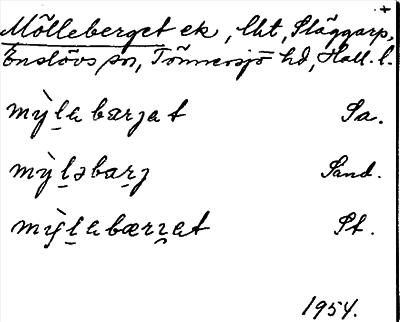 +
Mölleberget ek, lht, Släggarp,
Enslövs sn, Tönnersjö hd, Hall. l.
mỳl̠a bærȝat Sa.
mỳl̠əbær̠ȝ Sand.
mỳl̠abærȝ̠at St.
1954.